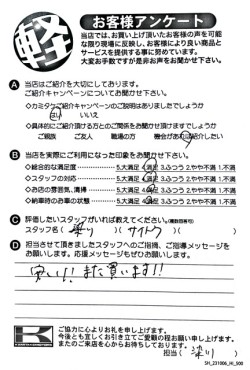 軽
お客様アンケート
当店では、お買い上げ頂いたお客様の声を可能
な限り現場に反映し、お客様により良い商品と
サービスを提供する事に努めています。
大変お手数ですが是非お声をお聞かせ下さい。
A 当店はご紹介を大切にしております。
ご紹介キャンペーンについてお聞かせ下さい。
◇カミタケご紹介キャンペーンのご説明はありましたでしょうか
はい いいえ
◇具体的にご紹介頂ける方とのご関係をお聞かせ頂けますでしょうか
ご親族 ご友人 職場の方 機会があれば紹介したい
B 当店を実際にご利用になった印象をお聞かせ下さい。
◇総合的な満足度 5.大満足 4.満足 3.ふつう 2.やや不満 1.不満
◇スタッフの対応 5.大満足 4.満足 3.ふつう 2.やや不満 1.不満
◇お店の雰囲気、清掃 5.大満足 4.満足 3.ふつう 2.やや不満 1.不満
◇納車時のお車の状態 5.大満足 4.満足 3.ふつう 2.やや不満 1.不満
C 評価したいスタッフがいれば教えてください。(複数回答可)
スタッフ名( 染川 )( サイトウ )( )
D 担当させて頂きましたスタッフへのご指摘、ご指導メッセージを
お願いします。応援メッセージもぜひお願いします。
安い!! また買います!!
K
ご協力に心よりお礼を申し上げます。
今後とも宜しくお引き立てご愛顧の程お願い申し上げます。
またのご来店を心からお待ちしております。
担当( 染川 )
SH_231006_HI_500